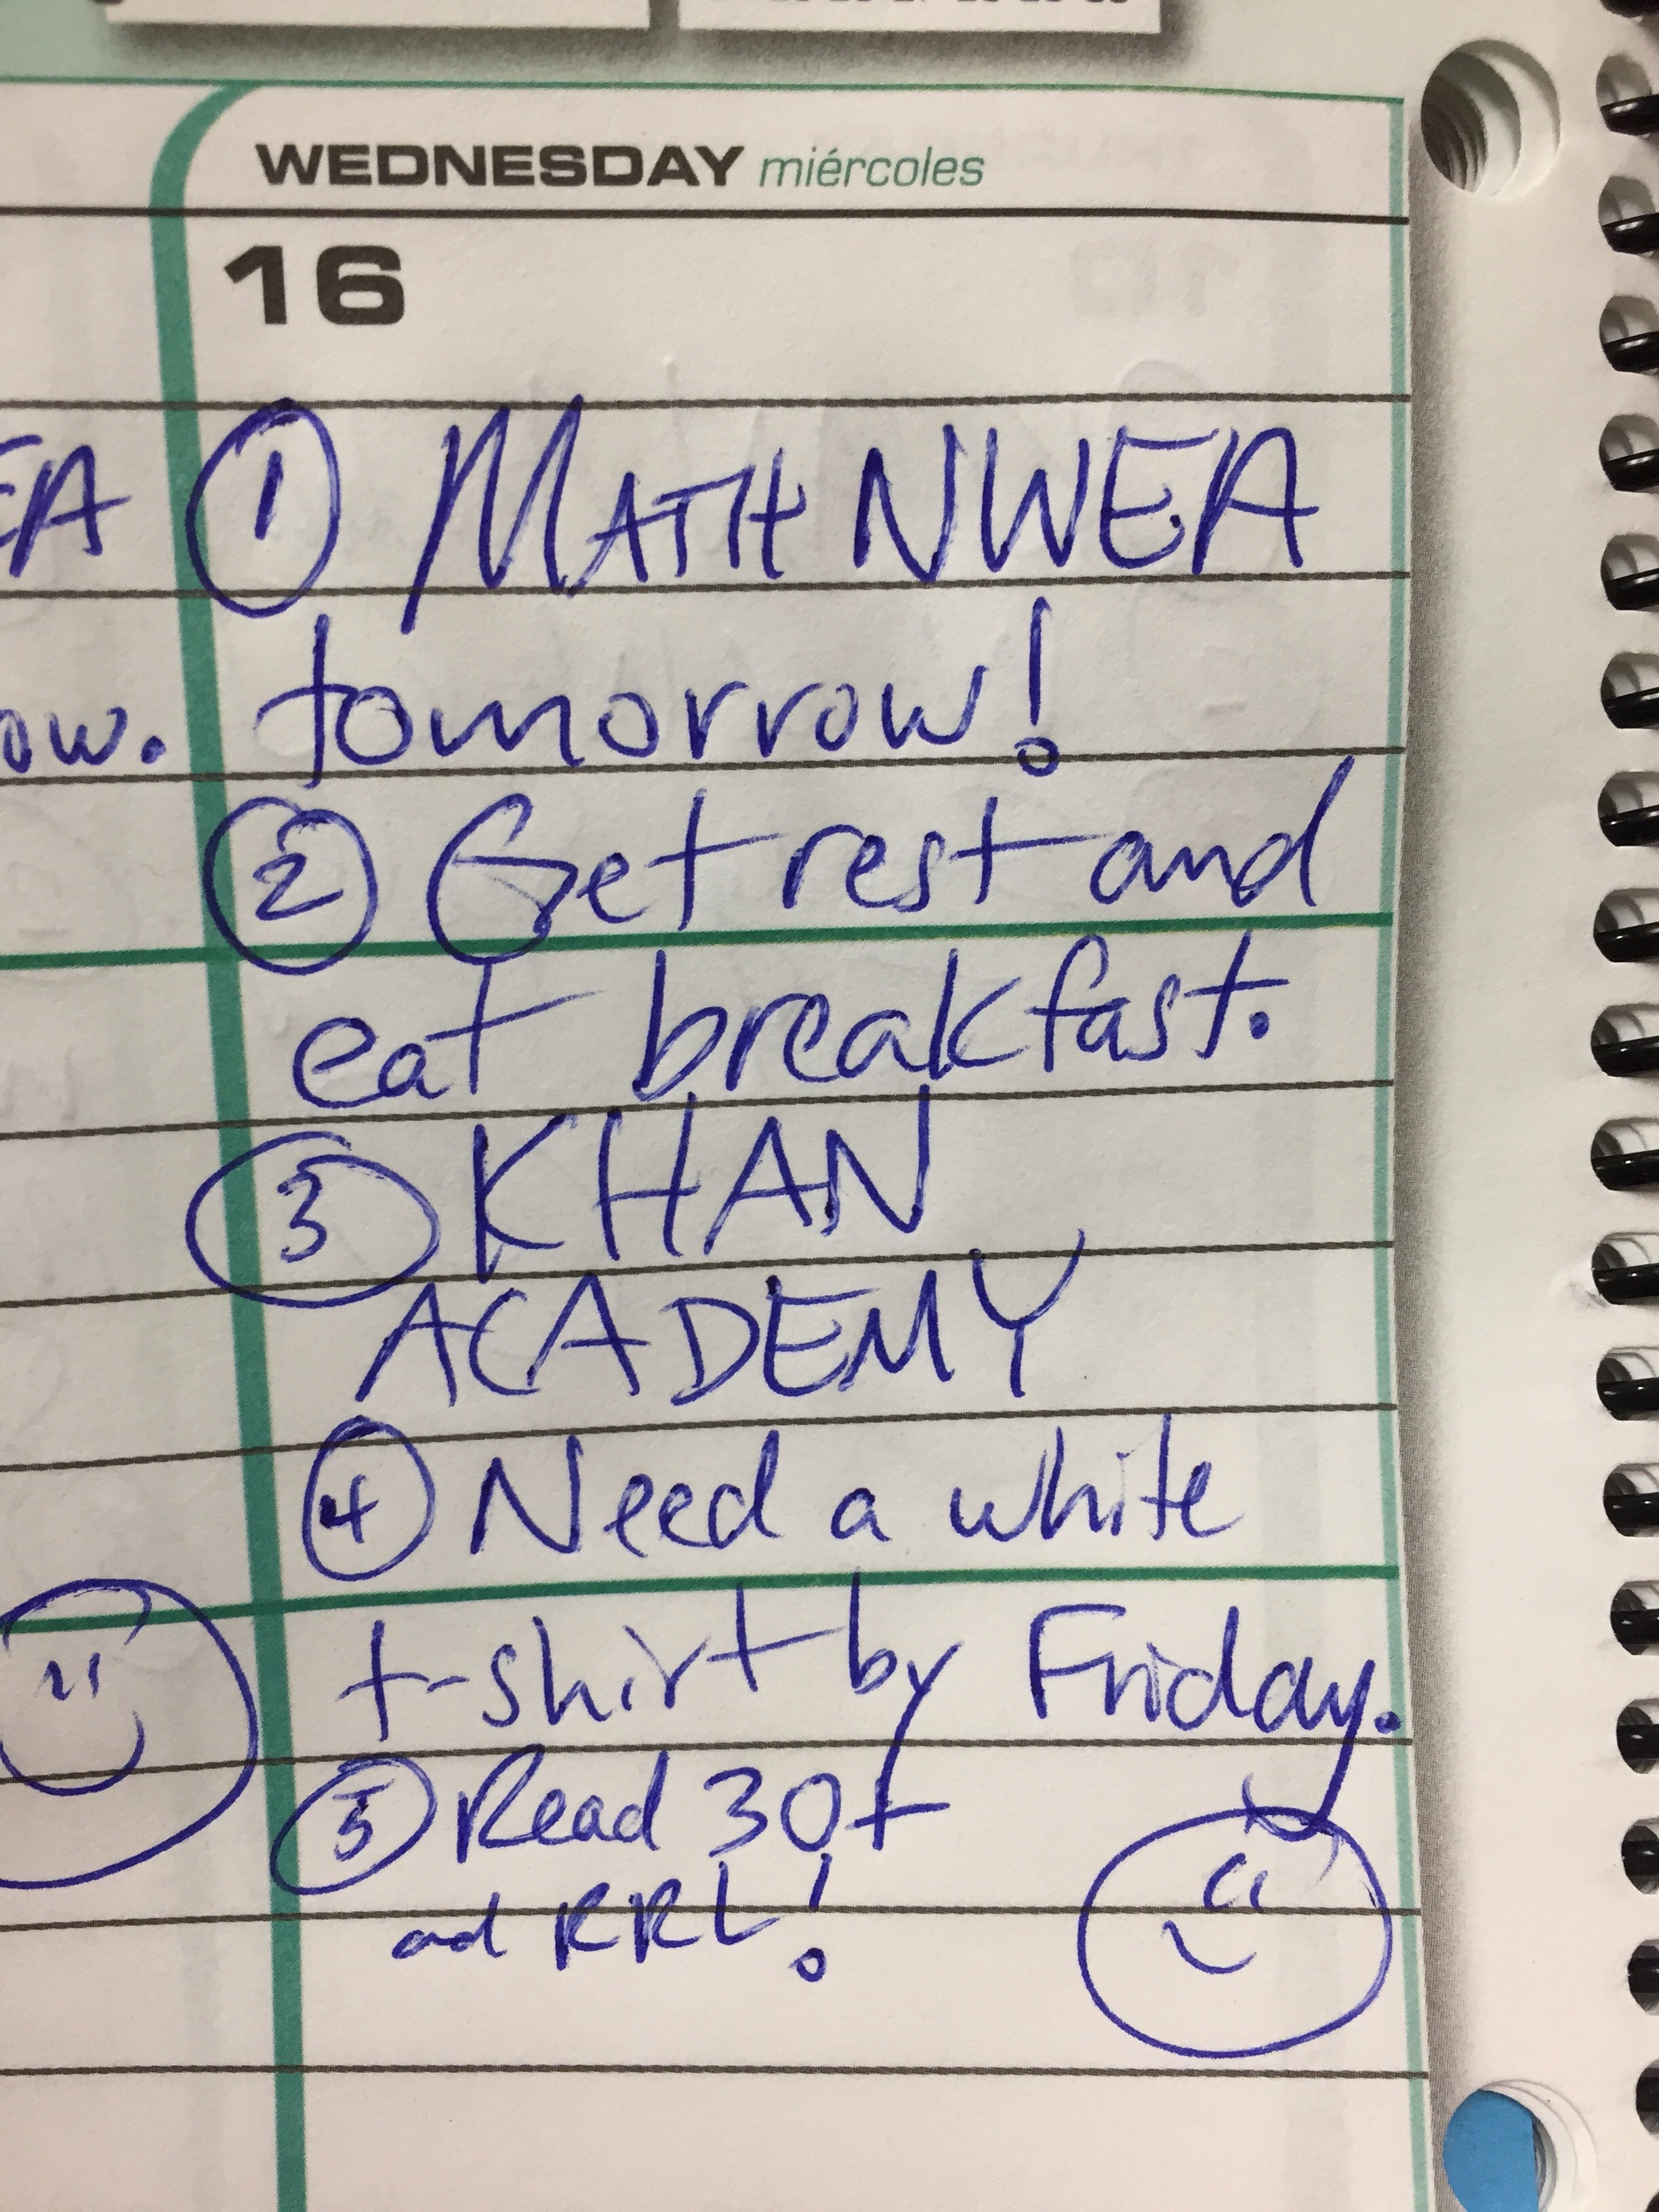 WEDNESDAY miércoles
16
EA
① MATH NWEA
ow.
tomorrow!
② Get rest and
eat breakfast.
③ KHAN
ACADEMY
④ Need a white
t-shirt by Friday.
⑤ Read 30+
and RRL!